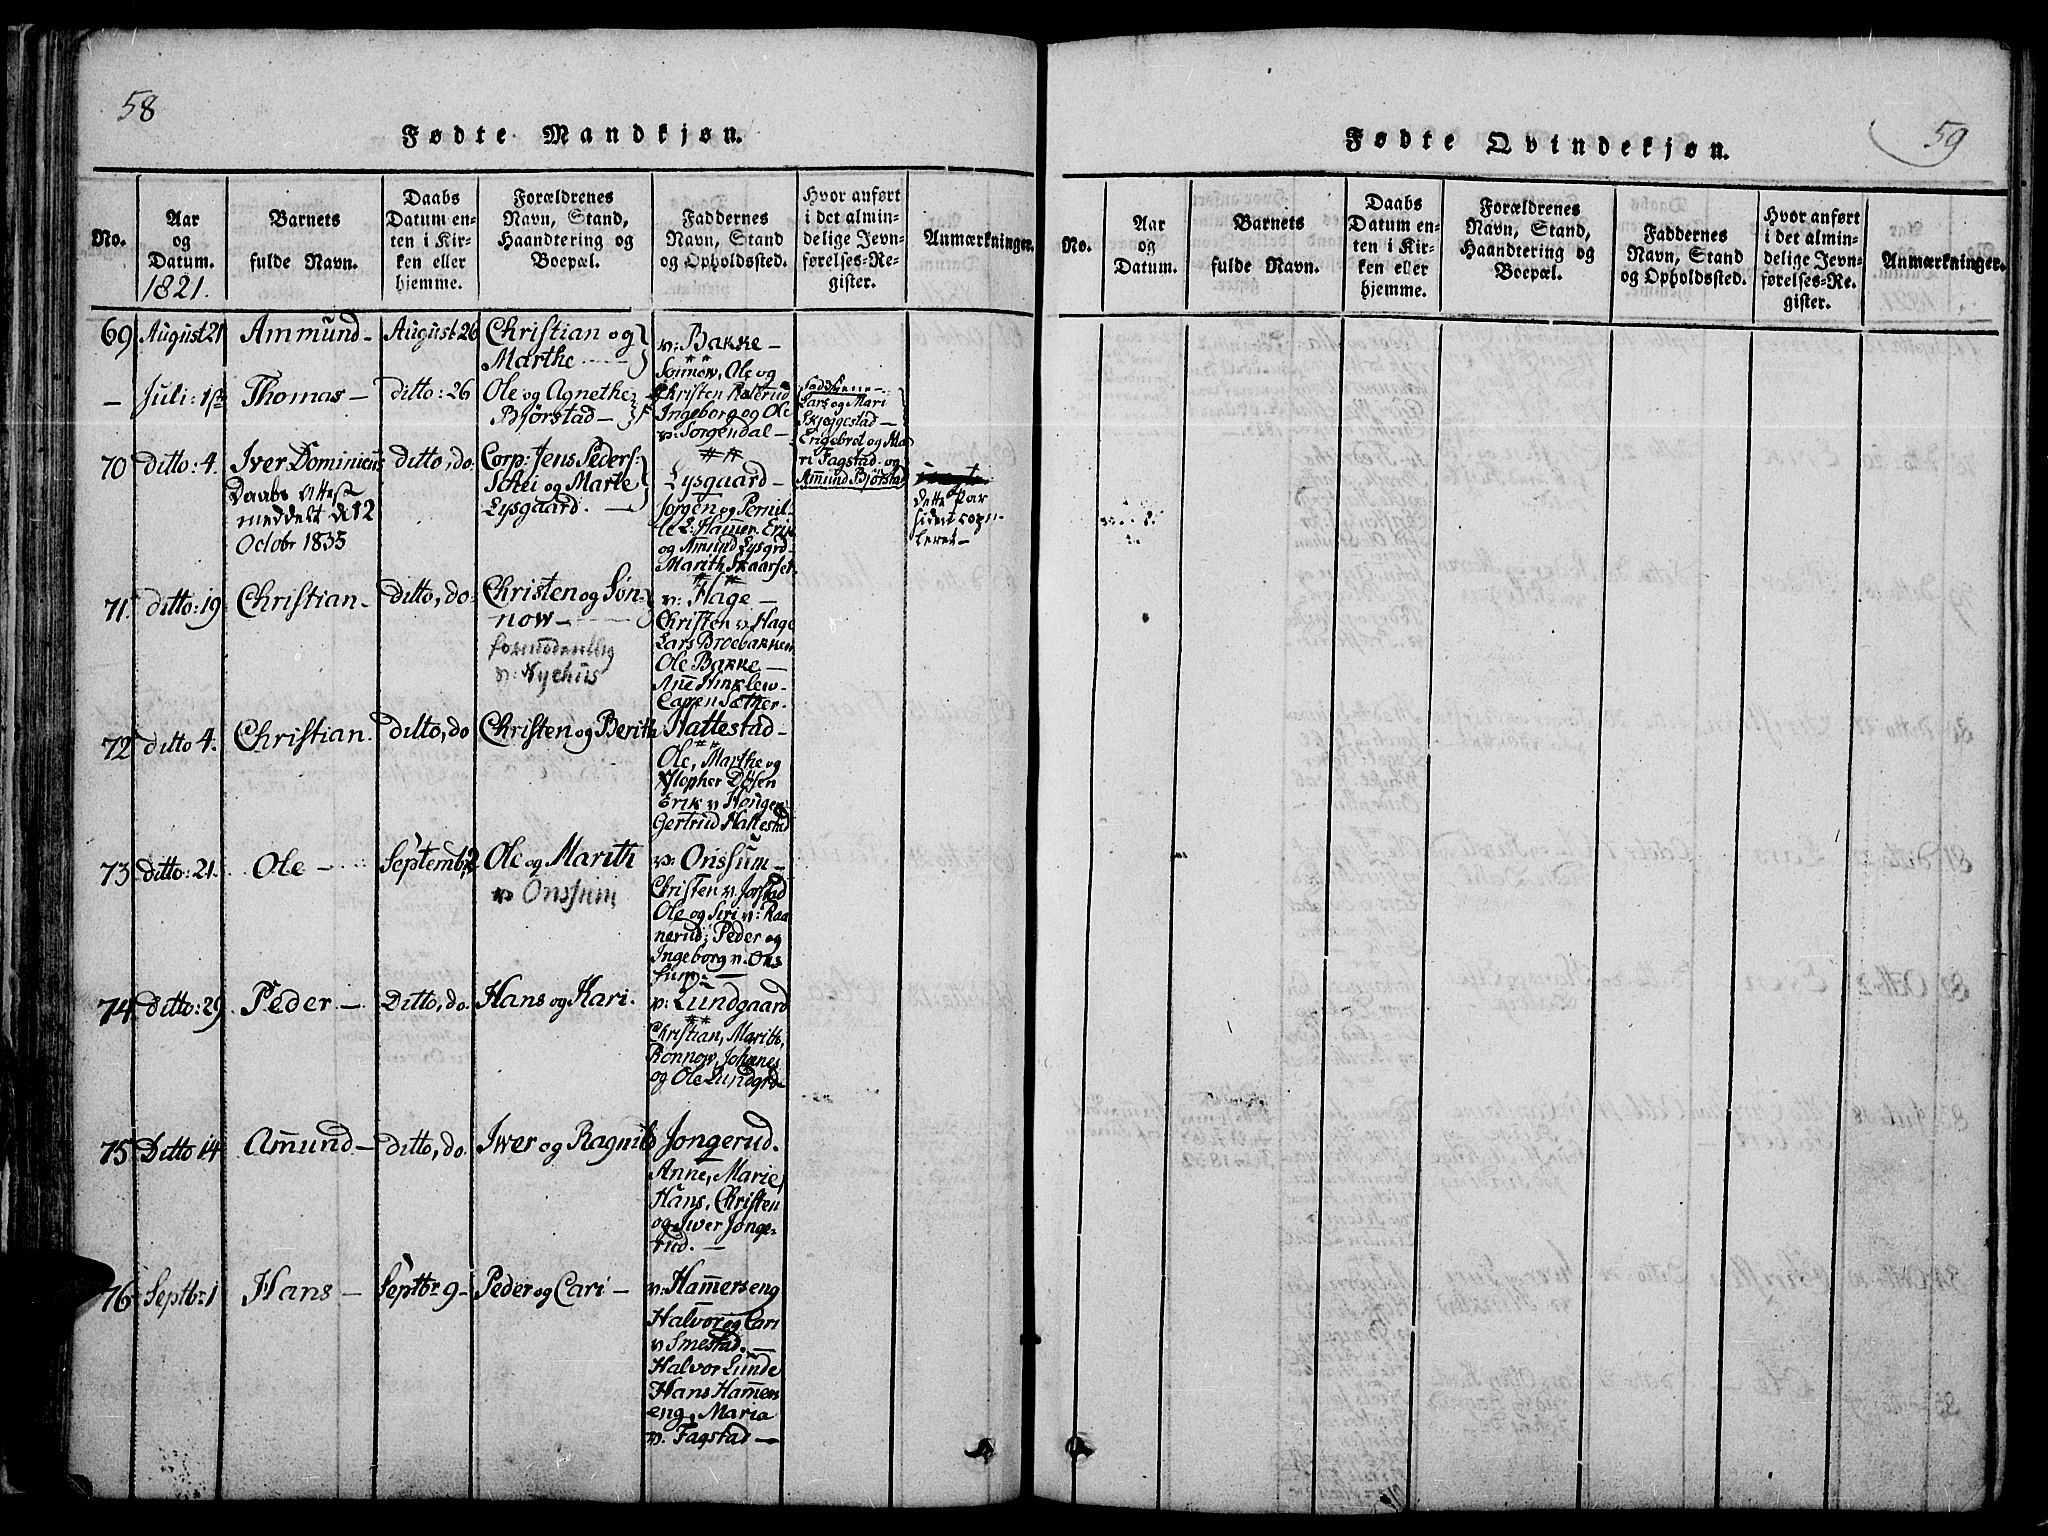 58
Fødte Mandkjøn.
No.
Aar
og
Datum.
1821.
Barnets
fulde Navn.
Daabs
Datum en-
ten i Kir-
ken eller
hjemme.
Forældrenes
Navn, Stand,
Haandtering og
Boepæl.
Faddernes
Navn, Stand
og Opholdssted.
Hvor anført
i det almin-
delige Jevn-
førelses-Re-
gister.
Anmærkninger.
69 August 21 Ammund- August 26 Christian og
Marthe
v: Bakke -
Ole og
Christen
Ingeborg og Ole
v: Sorgendal -
- Juli: Thomas - ditto: 26 Ole og Agnethe
Bjørstad -
Lars og Mari
Skjeggestad -
Engebret og Ma
ri Fagstad og
Amund Bjørsta
70 ditto: 4. Iver Dominicus ditto, do: Corp: Jens Peders:
Schei og Marte
Lysgaard. -
Daabs Attest
meddelt d: 12
Octobr 1835
Lysgaard -
Jørgen og Pernil
le L: Hamer. Erik
og Amund Lysgrd -
Marith Skaarset
dette Par
sidert cop-
leret -
71. ditto: 19 Christian - ditto, do: Christen og Søn-
now -
formodentlig
v: Nyehus
v: Hage -
Christen v: Hage
Lars Broebakken
Ole Bakke -
Añe
Sæther.
72 ditto 4. Christian. ditto, do Christen og Berith Hattestad -
Ole, Marthe og
Døsen
Erik v
Gertrud Hattestad
73 ditto: 21. Ole - Septembr 2 Ole og Marith
v: Onssum
v: Onssum -
Christen v: Jorstad
Ole og Siri v: Raa
nerud; Peder og
Ingeborg v: Ons
sum: -
74 ditto: 29 Peder - Ditto, do. Hans og Kari. v: Lundgaard
Christian, Marith,
Ronnow, Johañes
og Ole Lundgrd -
75 Ditto 14 Amund - ditto, do. Iwer og Ragnild Jongerud.
Anne, Marie,
Hans, Christen
og Iwer Jonge-
rud. -
76 Septbr: 1 Hans - Septbr 9 - Peder og Cari - v: Hamerseng
Halvor og Cari
v Smestad. -
Halvor Lunde
Hans Hamers
eng, Maria
v. Fagstad -
59
Fødte Qvindekjøn.
No.
Aar
og
Datum.
Barnets
fulde Navn.
Daabs
Datum en-
ten i Kir-
ken eller
hjemme.
Forældrenes
Navn, Stand,
Haandtering og
Boepæl.
Faddernes
Navn, Stand
og Opholdssted.
Hvor anført
i det almin-
delige Jevn-
førelses-Re-
gister.
Anmærkninger.